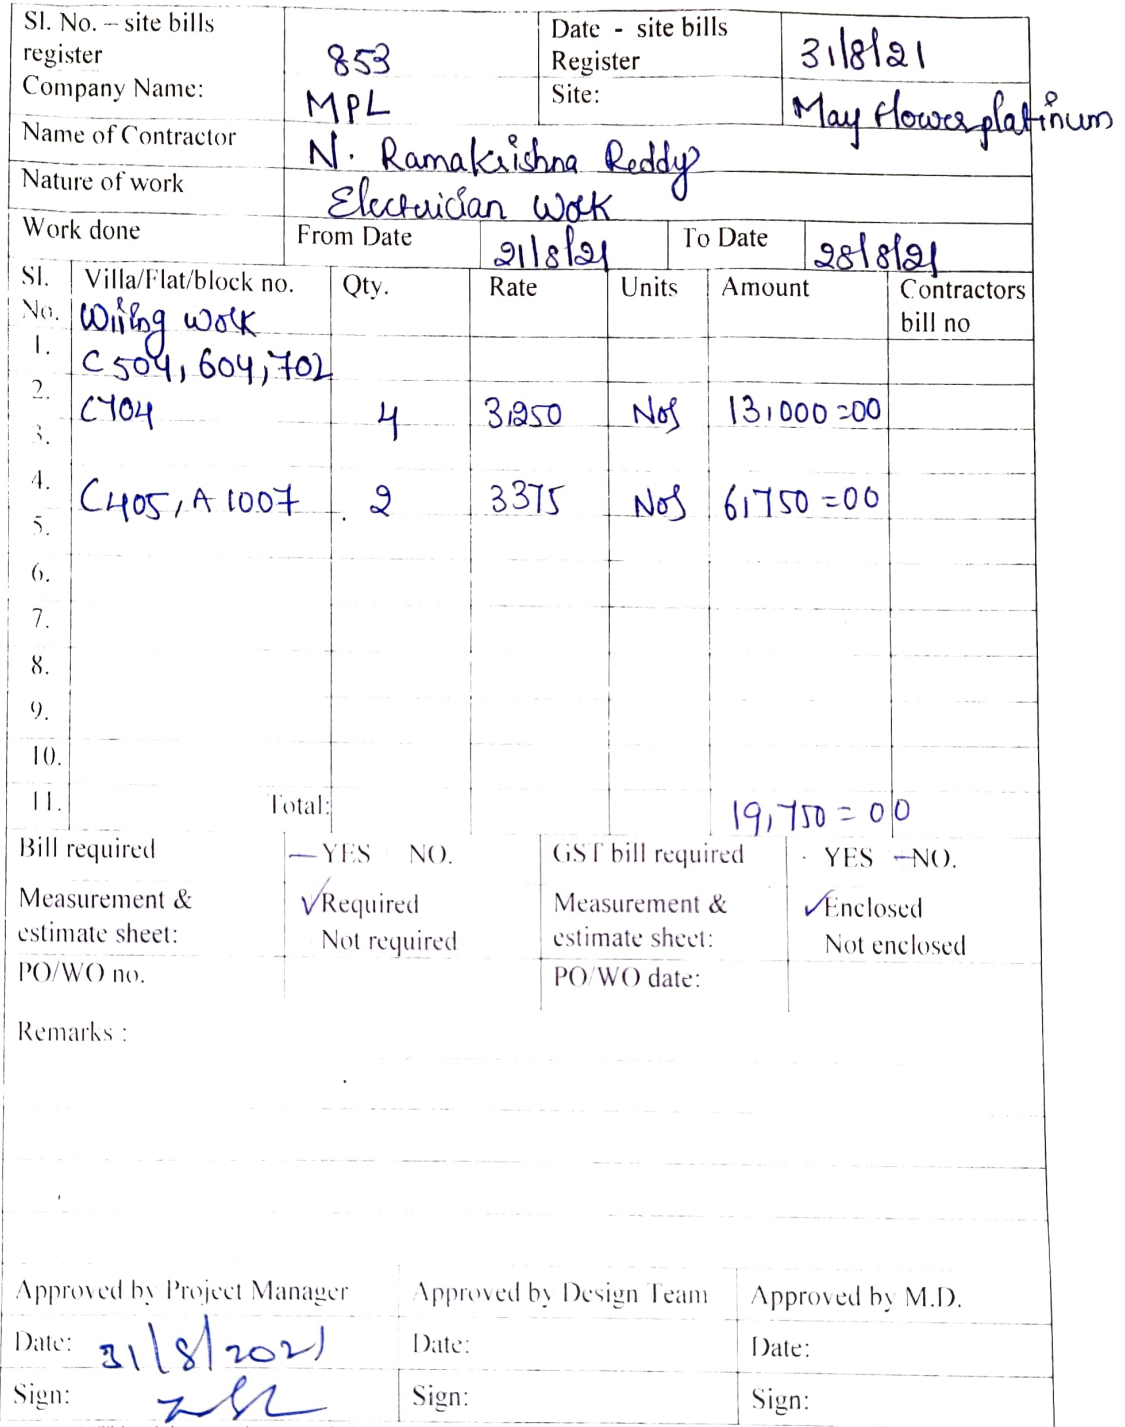 Sl. No. – site bills register 853 Date - site bills Register 31/8/21
Company Name: MPL Site: May flower platinum
Name of Contractor N. Ramakrishna Reddy
Nature of work Electrician Work
Work done From Date 21/8/21 To Date 28/8/21
Sl. No. Villa/Flat/block no. Qty. Rate Units Amount Contractors bill no
Wiring work
1. C504, 604, 702
2. C704 4 3,250 Nos 13,000=00
3.
4. C405, A1007 2 3375 Nos 6,750=00
5.
6.
7.
8.
9.
10.
11. Total: 19,750=00
Bill required –YES NO. GST bill required YES –NO.
Measurement & estimate sheet: ✓Required Not required Measurement & estimate sheet: ✓Enclosed Not enclosed
PO/WO no. PO/WO date:
Remarks :
Approved by Project Manager Approved by Design Team Approved by M.D.
Date: 31/8/2021 Date: Date:
Sign: Sign: Sign: